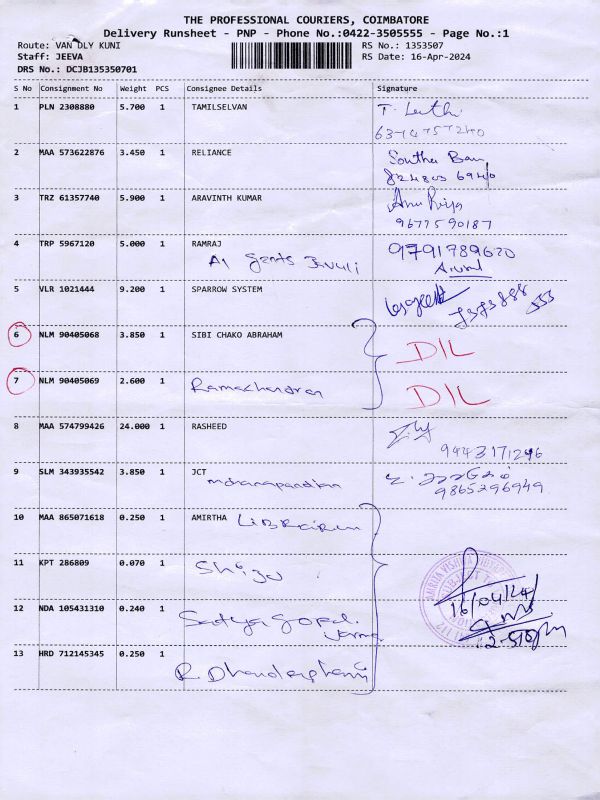 THE PROFESSIONAL COURIERS, COIMBATORE
Delivery Runsheet - PNP - Phone No.:0422-3505555 - Page No.:1
Route: VAN DLY KUNI RS No.: 1353507
Staff: JEEVA RS Date: 16-Apr-2024
DRS No.: DCJB135350701
S No Consignment No Weight PCS Consignee Details Signature
1 PLN 2308880 5.700 1 TAMILSELVAN
2 MAA 573622876 3.450 1 RELIANCE
3 TRZ 61357740 5.900 1 ARAVINTH KUMAR
9677590187
4 TRP 5967120 5.000 1 RAMRAJ 9791789620
5 VLR 1021444 9.200 1 SPARROW SYSTEM
6 NLM 90405068 3.850 1 SIBI CHAKO ABRAHAM
7 NLM 90405069 2.600 1 Ramachandran
8 MAA 574799426 24.000 1 RASHEED
9443171296
9 SLM 343935542 3.850 1 JCT
mohanapandian 9865296949
10 MAA 865071618 0.250 1 AMIRTHA
11 KPT 286809 0.070 1 Shiju
12 NDA 105431310 0.240 1 Satya Gopal
Varma
16/04/24
13 HRD 712145345 0.250 1